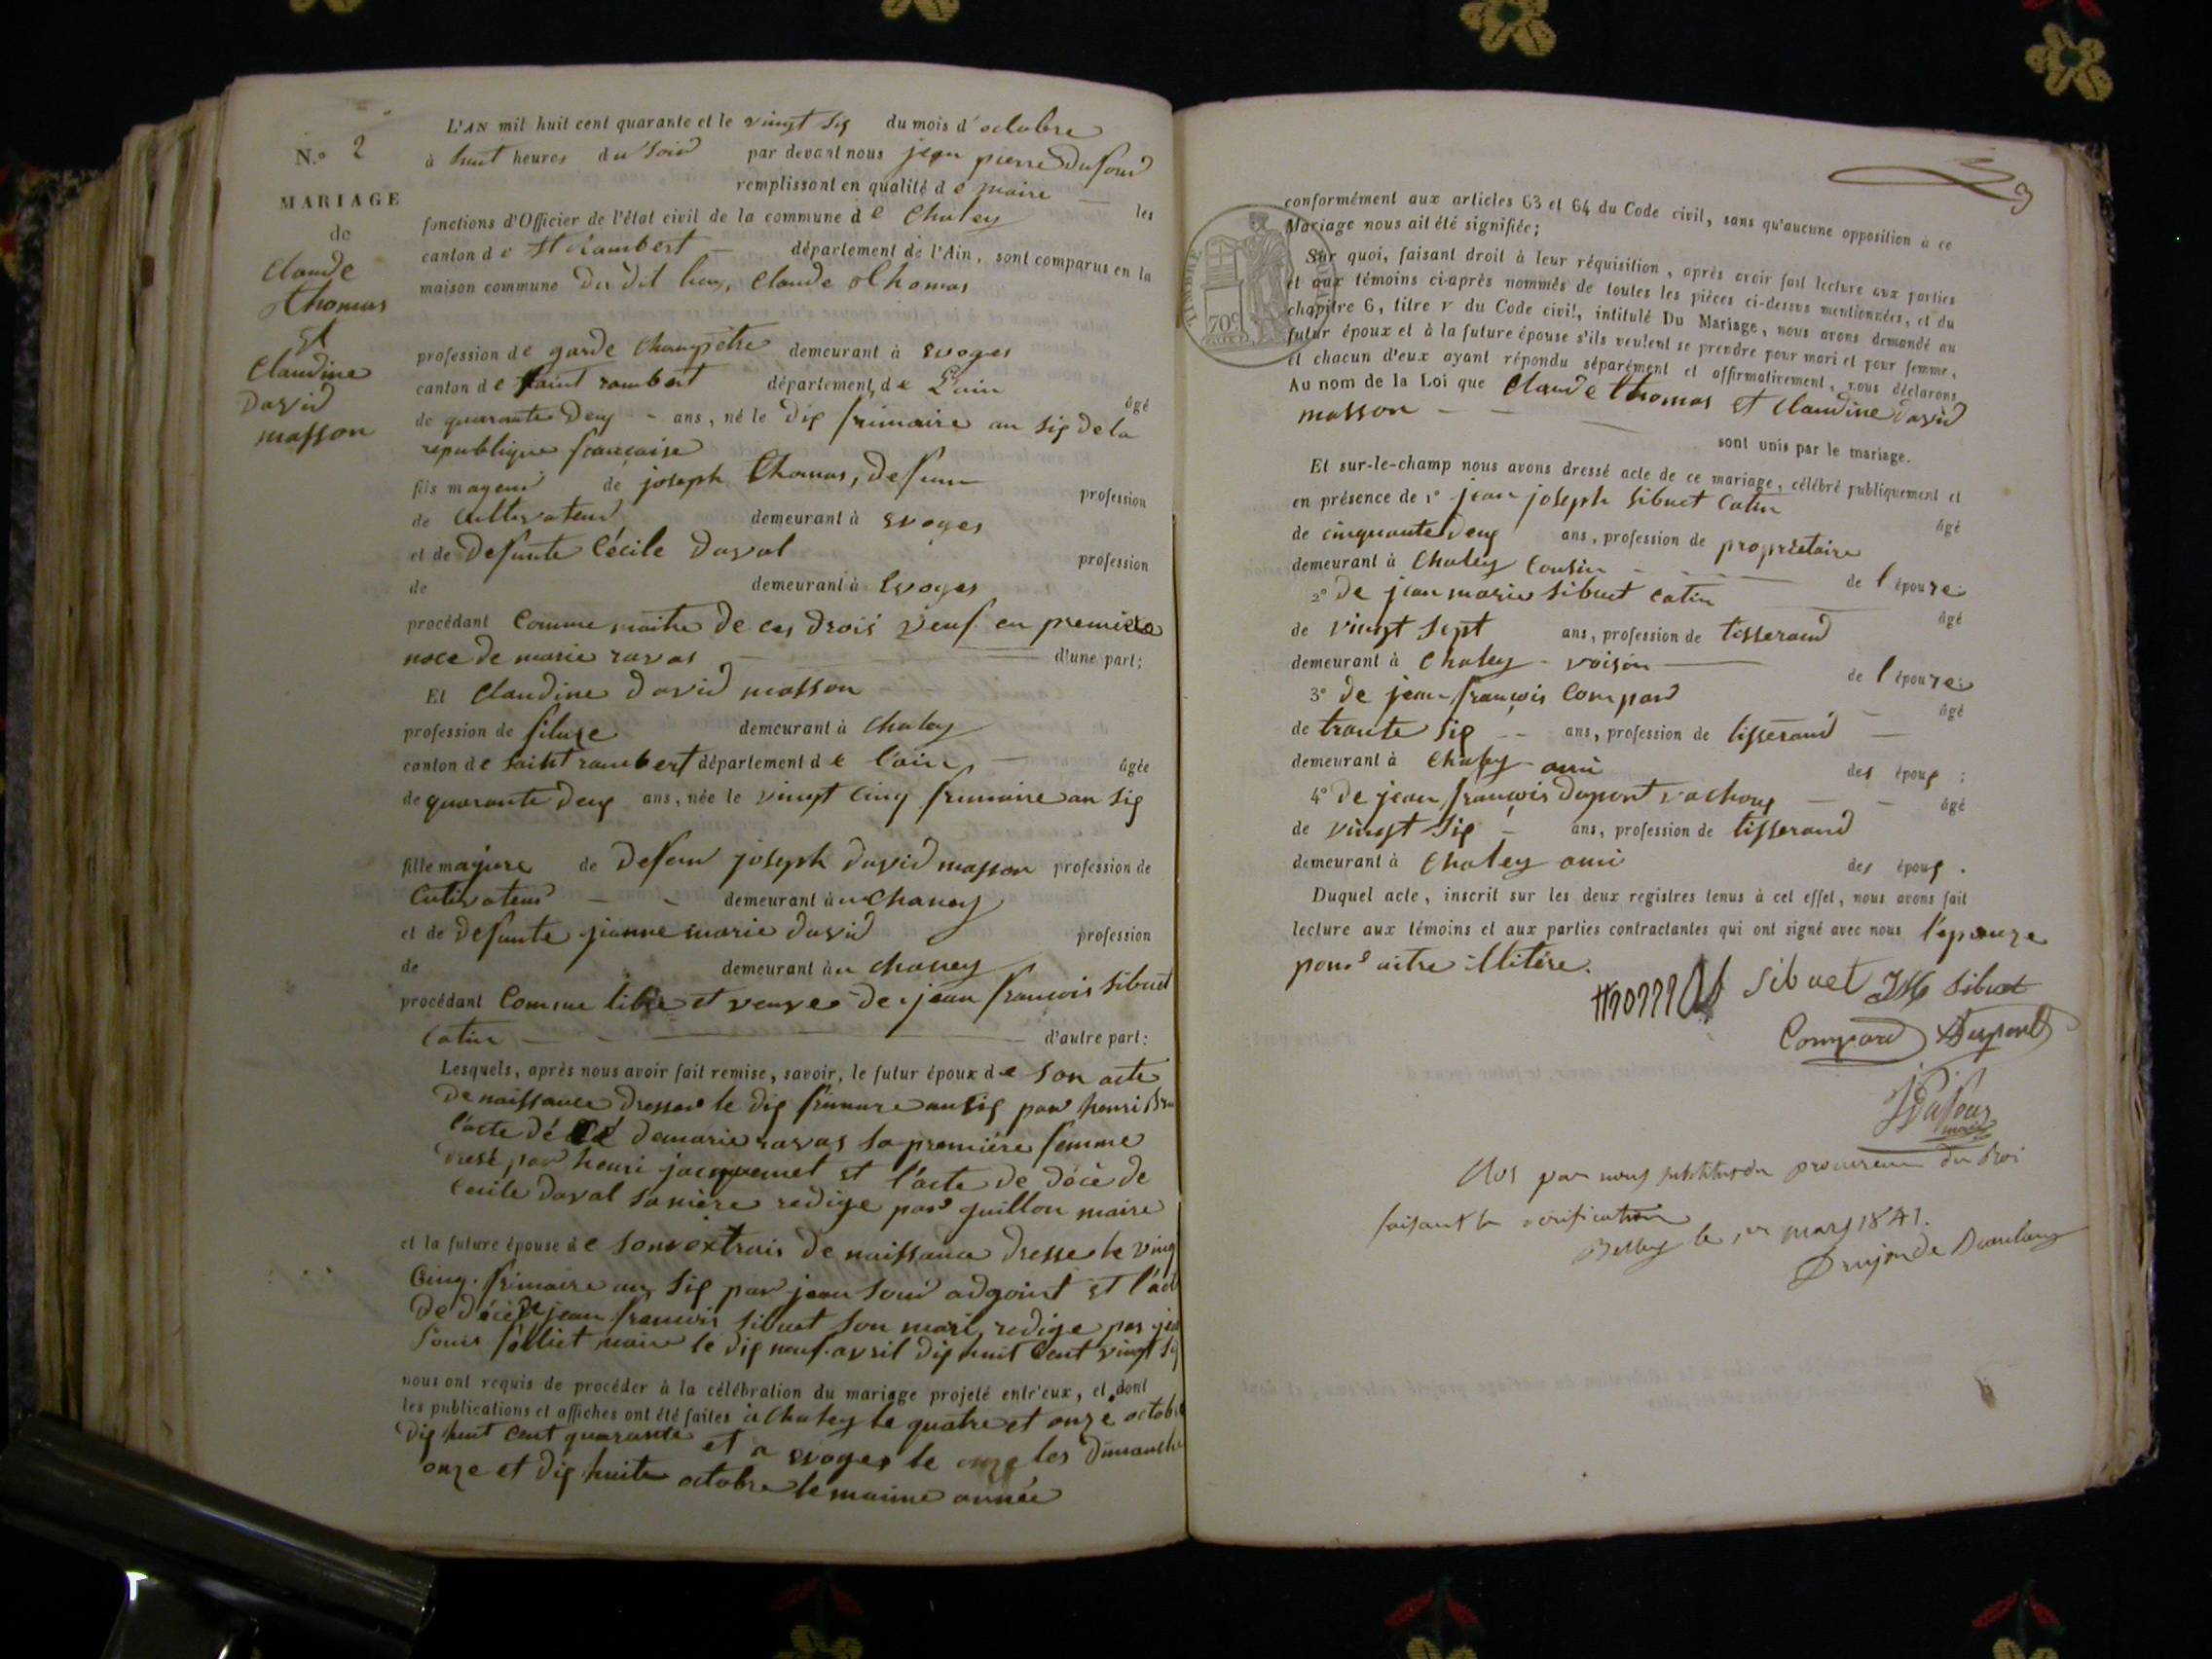 N.º 2
MARIAGE
de
Claude
thomas
Et
Claudine
David
masson
L'AN mil huit cent quarante et le vingt six du mois d'octobre
à huit heures du soir par devant nous jean pierre Dufour
remplissont en qualité de maire les
fonctions d'Officier de l'état civil de la commune de Chaley
canton de St Rambert département de l'Ain, sont comparus en la
maison commune du dit lieu, Claude thomas
profession de garde Champetre demeurant à Evoges
canton de saint rambert département de L'ain âgé
de quarante deux ans, né le dix frimaire an six de la
republique francaise
fils mageur de joseph thomas, defunt profession
de cultivateur demeurant à Evoges
et de defunte Cécile daval profession
de demeurant à Evoges
procédant comme maitre de ces drois veuf en premiere
noce de marie ravas d'une part;
Et Claudine david masson
profession de fileuze demeurant à chaley
canton de saint rambert département de l'ain âgée
de quarante deux ans, née le vingt cinq frimaire an six
fille majure de defun joseph david masson profession de
cutivateur demeurant à Chaney
et de defunte jianne marie david profession
de demeurant à chaney
procédant comme libre et veuve de jean francois sibuet
catin d'autre part:
Lesquels, après nous avoir fait remise, savoir, le futur époux de son acte
de naissance dresser le dix frimaire an six par henri
l'acte dé de marie ravas sa premiére femme
par henri jacquemet et l'acte de décè de
Cecile daval sa mere redige par guillon maire
et la future épouse de son extrais de naissance dresse le ving
cinq frimaire an six par jean adgoint et l'act
de décè de jean francois sibuet son mari, redige par
maire le dix neuf avril dix huit cent vingt
nous ont requis de procéder à la célébration du mariage projeté entr'eux, et dont
les publications et affiches ont été faites à Chaley le quatre et onze octobre
dix huit cent quarante et a Evoges le les dimanche
onze et dix huite octobre le maime année
conformément aux articles 63 et 64 du Code civil, sans qu'aucune opposition à ce
Mariage nous ait été signifiée;
Sur quoi, faisant droit à leur réquisition, après avoir fait lecture aux parties
et aux témoins ci-après nommés de toutes les pièces ci-dessus mentionnées, et du
chapitre 6, titre V du Code civil, intitulé Du Mariage, nous avons demandé au
futur époux et à la future épouse s'ils veulent se prendre pour mari et pour femme,
et chacun d'eux ayant répondu séparément et affirmativement, nous déclarons
Au nom de la Loi que Claude thomas et Claudine david
masson
sont unis par le mariage.
Et sur-le-champ nous avons dressé acte de ce mariage, célébré publiquement et
en présence de 1º jean joseph sibuet catin âgé
de cinquante deux ans, profession de propriétaire
demeurant à Chaley cousin de l'épouze
2º de jean marie sibuet catin âgé
de vingt sept ans, profession de tisserand
demeurant à Chaley voisin de l'épouze
3º de jean françois Compard âgé
de trante six ans, profession de tisserand
demeurant à Chaley ami des époux;
4º de jean françois dupont vachoux âgé
de vingt six ans, profession de tisserand
demeurant à Chaley ami des époux.
Duquel acte, inscrit sur les deux registres tenus à cet effet, nous avons fait
lecture aux témoins et aux parties contractantes qui ont signé avec nous l'epouze
pour aitre illitére.
Sibuet JM Sibuet
Compard Dupont
Dufour
maire
par nous substitut du procureur du Roi
faisant la vérification
Belley le 1er mars 1841.
TIMBRE ROYAL
70c